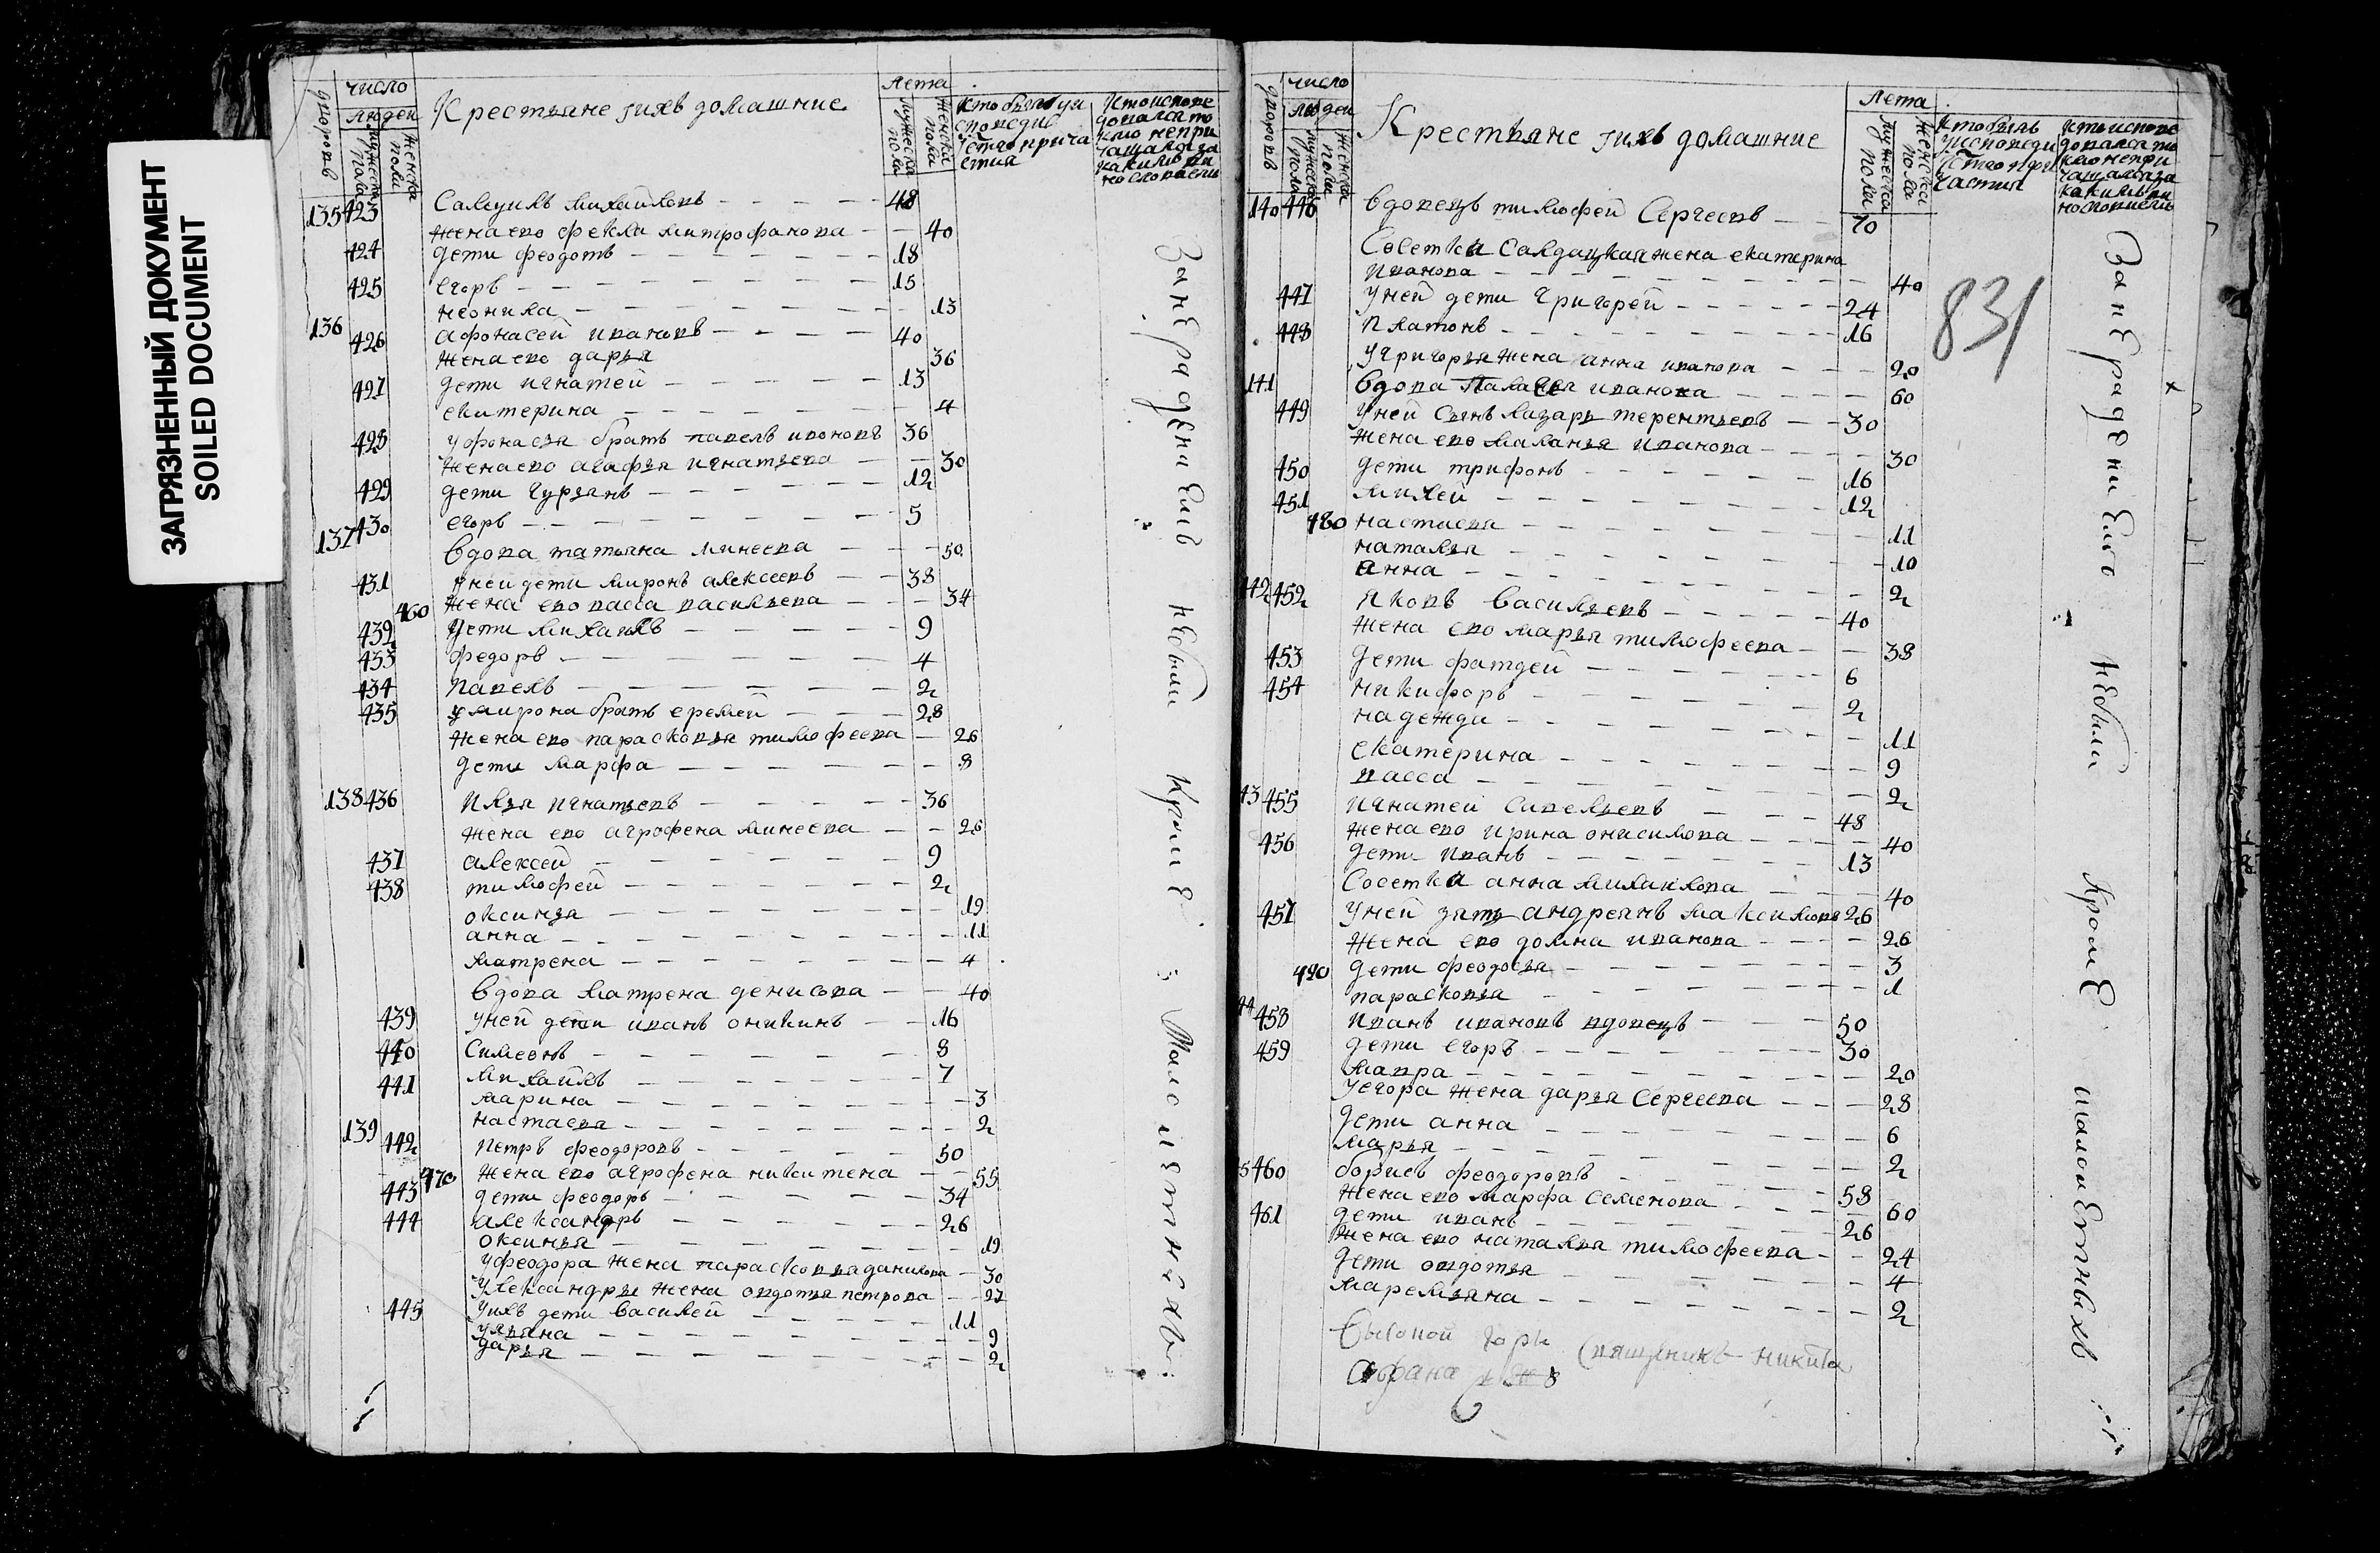 ЗАГРЯЗНЕННЫЙ ДОКУМЕНТ
SOILED DOCUMENT
дворовъ
число
людей
мужеска пола
женска пола
Крестьяне ихъ домашние
лета
мужеска пола
женска пола
135 423 Самуилъ михайловъ 48
жена ево фекла митрофанова 40
424 дети феодотъ 18
425 егоръ 15
неонила 13
136 426 афонасей ивановъ 40
жена ево дарья 36
427 дети игнатей 13
екатерина 4
428 уфонасья братъ павелъ ивановъ 36
жена ево агафья игнатьева 30
429 дети гурьянъ 12
430 егоръ 5
137 вдова татьяна минеева 50
431 уней дети миронъ алексеевъ 38
460 жена ево васса васильева 34
432 дети михаилъ 9
433 федоръ 4
434 павелъ 2
435 умирона братъ еремей 28
жена ево парасковья тимофеева 26
дети марфа 8
138 436 илья игнатьевъ 36
жена ево агрофена минеева 26
437 алексей 9
438 тимофей 2
оксинья 19
анна 11
матрена 4
вдова матрена денисова 40
439 уней дети иванъ оникинъ 16
440 Симеонъ 8
441 михайлъ 7
марина 3
настасья 2
139 442 петръ феодоровъ 50
470 жена ево агрофена никитена 55
443 дети феодоръ 34
444 александръ 26
оксинья 19
уфеодора жена парасковья данилова 30
уалександры жена овдотья петрова 27
445 уихъ дети василей 11
ульяна 9
дарья 2
Занерадениемъ небыли кроме малолетныхъ
дворовъ
число
людей
мужеска пола
женска пола
Крестьяне ихъ домашние
лета
мужеска пола
женска пола
831
140 446 вдовецъ тимофей Сергеевъ 70
Соетка Салдацкая жена екатерина
иванова 40
447 уней дети григорей 24
448 платонъ 16
угригорья жена анна иванова 20
141 вдова палагея иванова 60
449 уней сынъ лазарь терентьевъ 30
жена ево маланья иванова 30
450 дети трифонъ 16
451 михей 12
480 настасья 11
наталья 10
анна 2
142 452 яковъ васильевъ 40
жена ево марья тимофеева 38
453 дети фатдей 6
454 никифоръ 2
надежди 11
екатерина 9
васса 2
43 455 игнатей савельевъ 48
жена ево ирина онисимова 40
456 дети иванъ 13
Соетка анна михаилова 40
457 уней зять андреянъ максимовъ 26
жена ево домна иванова 26
490 дети феодосья 3
парасковья 1
44 458 иванъ ивановъ вдовецъ 50
459 дети егоръ 30
мавра 20
уегора жена дарья Сергеева 28
дети анна 6
марья 2
5 460 борисъ феодоровъ 58
жена ево марфа семенова 60
461 дети иванъ 26
жена ево наталья тимофеева 24
дети овдотья 4
маремьяна 2
Занерадениемъ небыли кроме малолетныхъ